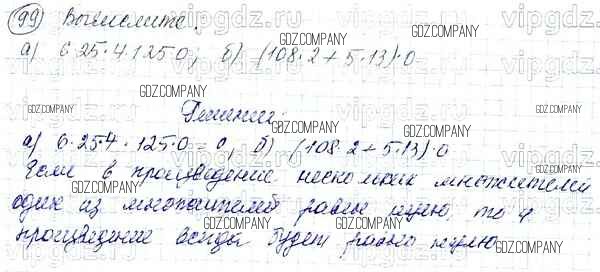 99 Вычислите:
а) 6·25·4·125·0; б) (108·2+5·13)·0
Решение:
а) 6·25·4·125·0=0, б) (108·2+5·13)·0
Если в произведение нескольких множителей
один из множителей равен нулю, то и
произведение всегда будет равно нулю